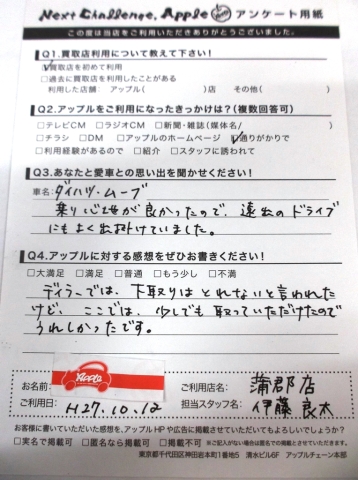 Next Challenge, Apple アンケート用紙
この度は当店をご利用いただきありがとうございました。
Q1.買取店利用について教えて下さい!
☑買取店を初めて利用
□過去に買取店を利用したことがある
利用した店舗: アップル( )店 その他( )
Q2.アップルをご利用になったきっかけは?(複数回答可)
□テレビCM □ラジオCM □新聞・雑誌(媒体名/ )
□チラシ □DM □アップルのホームページ ☑通りがかりで
□利用経験があるので □紹介 □スタッフに誘われて
Q3.あなたと愛車との思い出を聞かせください!
車名: ダイハツ・ムーブ
乗り心地が良かったので、遠出のドライブ
にもよく出掛けていました。
Q4.アップルに対する感想をぜひお書きください!
□大満足 □満足 □普通 □もう少し □不満
ディラーでは、下取りはとれないと言われた
けど、ここでは、少しでも取っていただけたので
うれしかったです。
お名前:
Apple
ご利用日: H27.10.12
ご利用店名: 蒲郡店
担当スタッフ名: 伊藤 良太
お客様に書いていただいた感想を、アップルHPや広告に掲載させていただいてもよろしいでしょうか?
□実名で掲載可 □匿名なら掲載可 □掲載不可 ※ご記入がない場合は匿名での掲載とさせていただきます。
東京都千代田区神田岩本町1番地5 清水ビル6F アップルチェーン本部